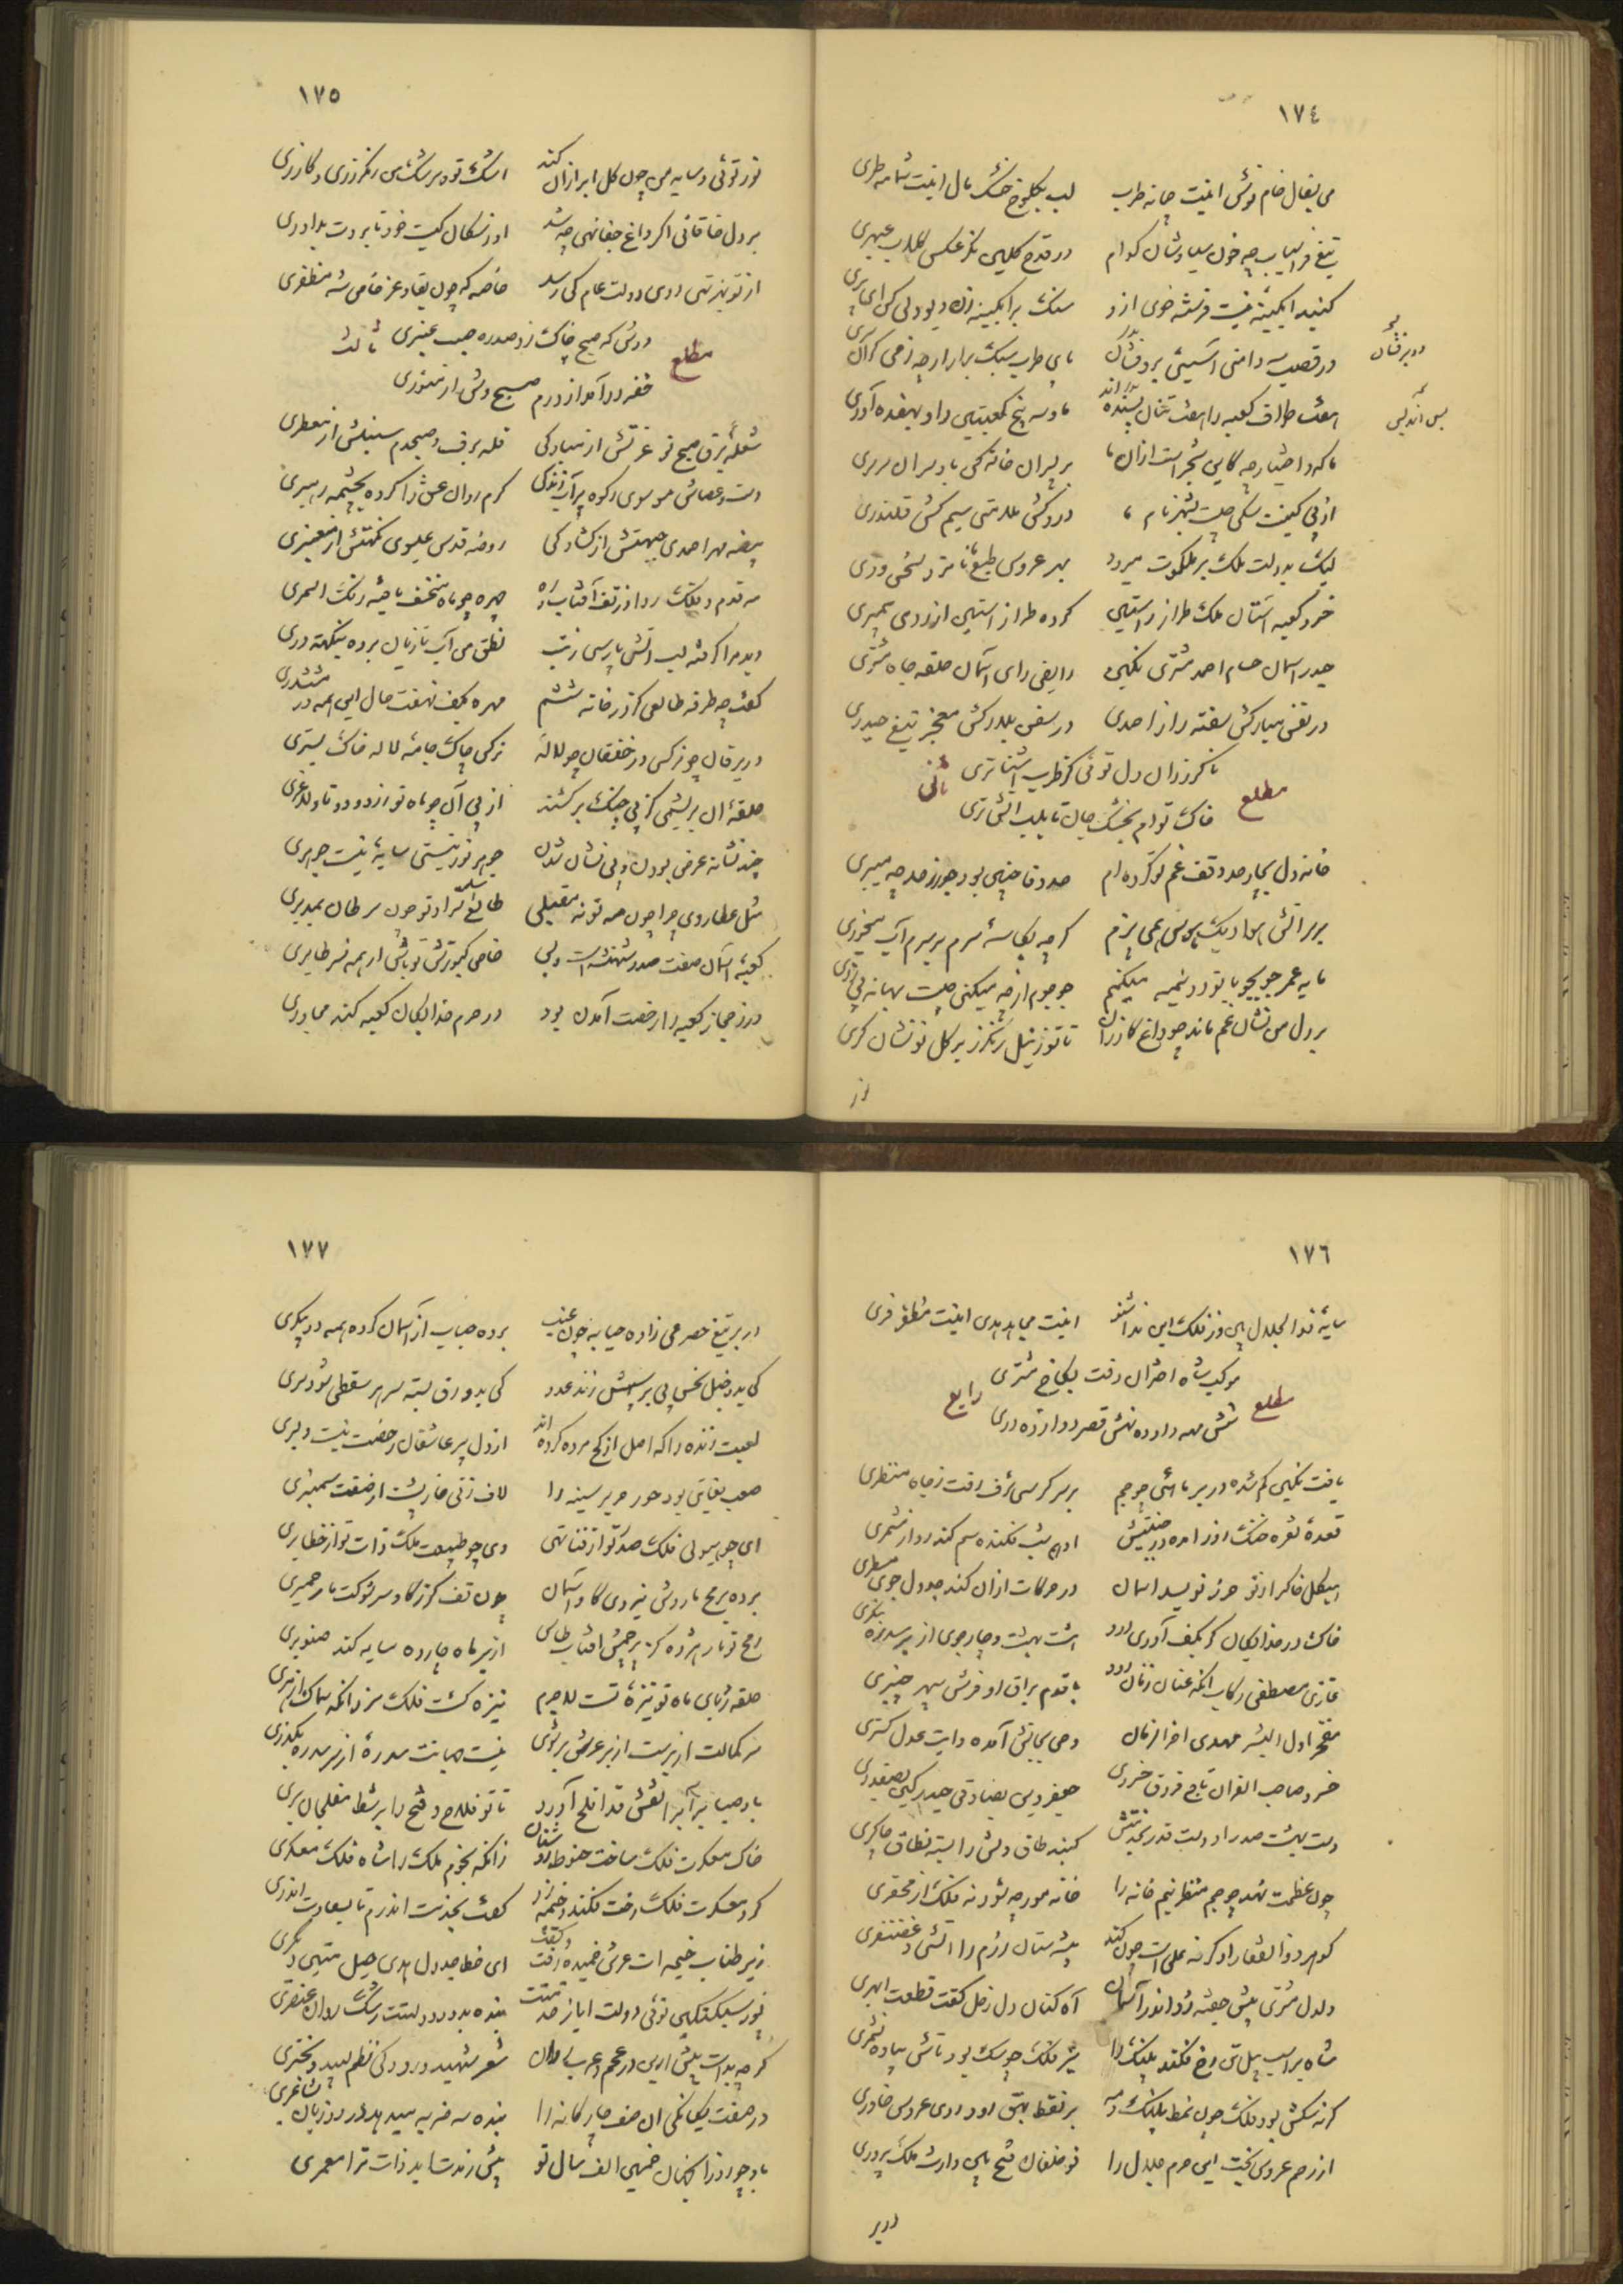 ١٧٤
می بسفال خام نوش اینت چمانه طرب لب بکلوخ خشک مال اینت شمامه طری
تیغ فراسیاب چه خون سیاوشان کدام در قدح گلین نگر عکس گلاب عبهری
کنید آبگینه نیست فرشته خوی ازو سنگ بر آبگینه زن دیو دلی کن ای پری
در قصب سه دامنی آستینی برفشان پای طرب سبک برآر ارچه ز می گران
هفت طواف کعبه را هفت تنان بسنده اند ما و سه پنج کعبتین داو بهفده آوری
ما که و اختیار چه کاین شجر است ازان ما بر پسران خانه کن باد سران سرسری
از پی کیفت
لیک بدولت ملک بر ملکوت میرود بهر عروس طبع ما نامزد سخن وری
خسرو کعبه آستان ملک طراز راستین کرده طراز آستین از ردی پیمبری
حیدر آسمان حسام احمد مشتری نگین رایض رای آسمان حلقه جاه مشتری
در نفس مبارکش سفته راز احمدی در سفن بلارکش معجز تیغ حیدری
مطلع ثانی
با کرزان دل توئی کز طرب آشناتری
خاک توام بخشک جان تا بلب آتش تری
خانه دل بچار حد وقف غم تو کرده ام حد وفا چنین بود جور ز حد چه میبری
بر سر آتش هوا دیک هوس همی پزم گرچه بکاسه سرم بر سرم آب میخوری
مایه عمر جو بجو با تو دو نیمه میکنم جو جوم از چه میکنی چیست بهانه بی زری
بر دل من نشان غم ماند چو داغ گازران تا تو ز نیل رنگرز بر گل تو نشان گری
از
١٧٥
نور توئی و سایه من چون گل ابر ازان کند اشک تو در سرشک من رنگرزی و گازری
بر دل خاقانی اگر داغ جفا نهی چه شد او ز سگان کیست خود تا بردت بداوری
از تو بهر تهی دوی دولت عام کی رسد خاصه که چون بقا و عز خاص شه مظفری
مطلع ثالث
دوش که صبح چاک زد صدره جیب عنبری
خضر درآمد از درم صبح وش از منوری
شعله برق صبح نو غرتش از مبارکی قله برف و صبحدم سنبلش از معطری
دست و عصاش موسوی رکوه پر آب زندگی گرم روان عشق را کرده بچشمه رهبری
بیضه مهر احمدی جبهتش از گشادگی روضه قدس عیسوی نکهتش از معنبری
مه قدم و فلک ردا ز تف آفتاب و راه چهره چو ماه منخسف یافته رنگ اسمری
دید مرا گرفته لب آتش پارسی ز تب نطق من آب تازیان برده بنکته دری
گفت چه طرفه طالعی کز در خانه ششم مهره بکف نهفت حال این همه در ششدری
در یرقان چو نرگسی در خفقان چو لاله نرگس چاک جامه لاله خاک بستری
حلقه آن بریشمی کز پی چنگ برکشند از پی آن چو ماه نو زار و دوتا و لاغری
چند نشانه عرض بودن و بی نشان شدن جوهر نور نیستی سایه نیست جوهری
مثل عطاروی چرا چون مه نو نه مقبلی طالع شمس مراد تو چون سرطان بمدبری
کعبه آسمان صفت صدر شهنشه است و بس خاص کبوترش تو باش از همه نسر طایری
در ز حجاز کعبه را رخصت آمدن بود در حرم خدایگان کعبه کند مجاوری
١٧٦
سایه ذو الجلال بین وز فلک این ندا شنو اینت مجاهد هدی اینت مظفر فری
مطلع رابع
موکب شاه اختران رفت بکاخ مشتری
شش مهه داده ده نهش قصر دوازده دری
یافت نگین گم شده در بر ماهئی چو جم بر سر کرسی شرف رفت ز چاه مضطری
قعده نقره خنگ روز آمده در جنیبتش ادهم شب فکنده سم کندرو از مشمری
هیکل خاک را ز نو حرز نویسد آسمان در حرکات ازان کند جدول جوی مسطری
خاک در خدایگان گر بکف آوری درو هشت بهشت و چار جوی از بر سدره بنگری
غازی مصطفی رکاب آنکه عنان زنان رود با قدم براق او فرش سپهر چنبری
مفخر اول البشر مهدی آخر الزمان وحی بجانش آمده وآیت عدل گستری
خسرو صاحب القران تاج فروق خسروی جعفر دین بصادقی حیدر کین بصفدری
دست بهشت صدر او دست بقدر خدمتش گنبد طاق دیش را بسته نطاق چاکری
چون عظمت نهد چو جم منظر نیم خانه را خانه مورچه شود نه فلک از محقری
گوهر ذو الفقار او گر نه علی است چون کند بیشه ستان رزم را آتشی و غضنفری
دلدل مشتری بپیش جفته زد اندر آسمان آه کنان دل زحل گفت قطعت ابهری
شاه بر اسب پیل تن رخ فکند پلنگ را شیر فلک چو سگ بود تاش پیاده نشمری
گر نه سگش بود فلک چون نمط پلنگ و مه بر نقط بهق رود روی عروس خاوری
از رحم عروس بخت این حرم جلال را نو خلفان فتح بین وارث ملک پروری
در بر
١٧٧
در بر تیغ حصرمی زاده حبا به چون عنب برده حباب از آسمان کرده همه دو پیکری
کی بدو خیل نحس پی بر سپهش زند عدو کی بدو رق بسته سر بر سقطی شود سری
لعبت زنده را که اصل از گچ مرده کرده اند از دل پیر عاشقان رخصت نیست دلبری
صعب بغایتی بود حور حریر سینه را لاف زنی خارپشت از صفت سمنبری
ای چو هیولی فلک صدر تو از فنا تهی وی چو طبیعت ملک ذات تو از خطا بری
برده برمح ماروش نیروی گاو آسمان چون تف گرز گاوسر شوکت مار حمیری
رمح تو مار هژده کز پرچمش افتاب طاس از بر ماه چارده سایه کند صنوبری
حلقه ربای ماه نو نیزه تست لاجرم نیزه کشت فلک سزد زانکه سماک ازهری
سر کمالت از پرست از بر عرش بر شوی نیست جهانت سدره از سر سدره بگذری
باد صبا بر آب بر نقش قد افلح آورد تا تو فلاح و فتح را بر شط مفلحان بری
خاک معسکرت فلک ساخت حنوط روشنان زانکه نجوم ملک را شاه فلک معسکری
گرد معسکرت فلک رخت فکند و خیمه زد گفت بخدمت اندرم تا بسعادت اندری
زیر طناب خیمه ات عرش خمیده رفت و گفت ای خط جدول هدی حبل متین دیگری
پور سبکتکین توئی دولت ایاز خدمتت بنده بدور دولتت رشک روان عنصری
گرچه بداست پیش ازین در عجم و عرب روان شعر شهید و رودکی نظم لبید و بحتری
در صفت یگانگی آن صف چارگانه را بنده سه ضربه میدهد در دو زبان شاعری
باد چو روز آنجهان خمسین الف سال تو بیش زند شاید ذات ترا معمری